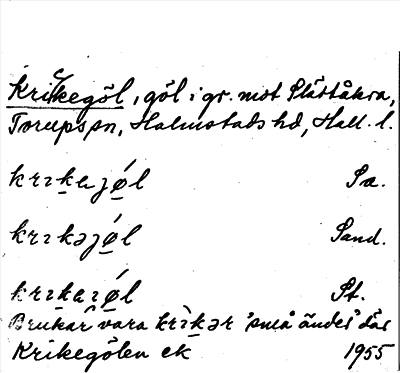 Krikegöl, göl i gr. mot Slättåkra,
Torups sn, Halmstads hd, Hall. l.
krɪkajǿl Sa.
krɪkəjǿl Sand.
krɪkaɪǿl St.
Brukar vara krìkər 'små änder' där
Krikegölen ek 1955